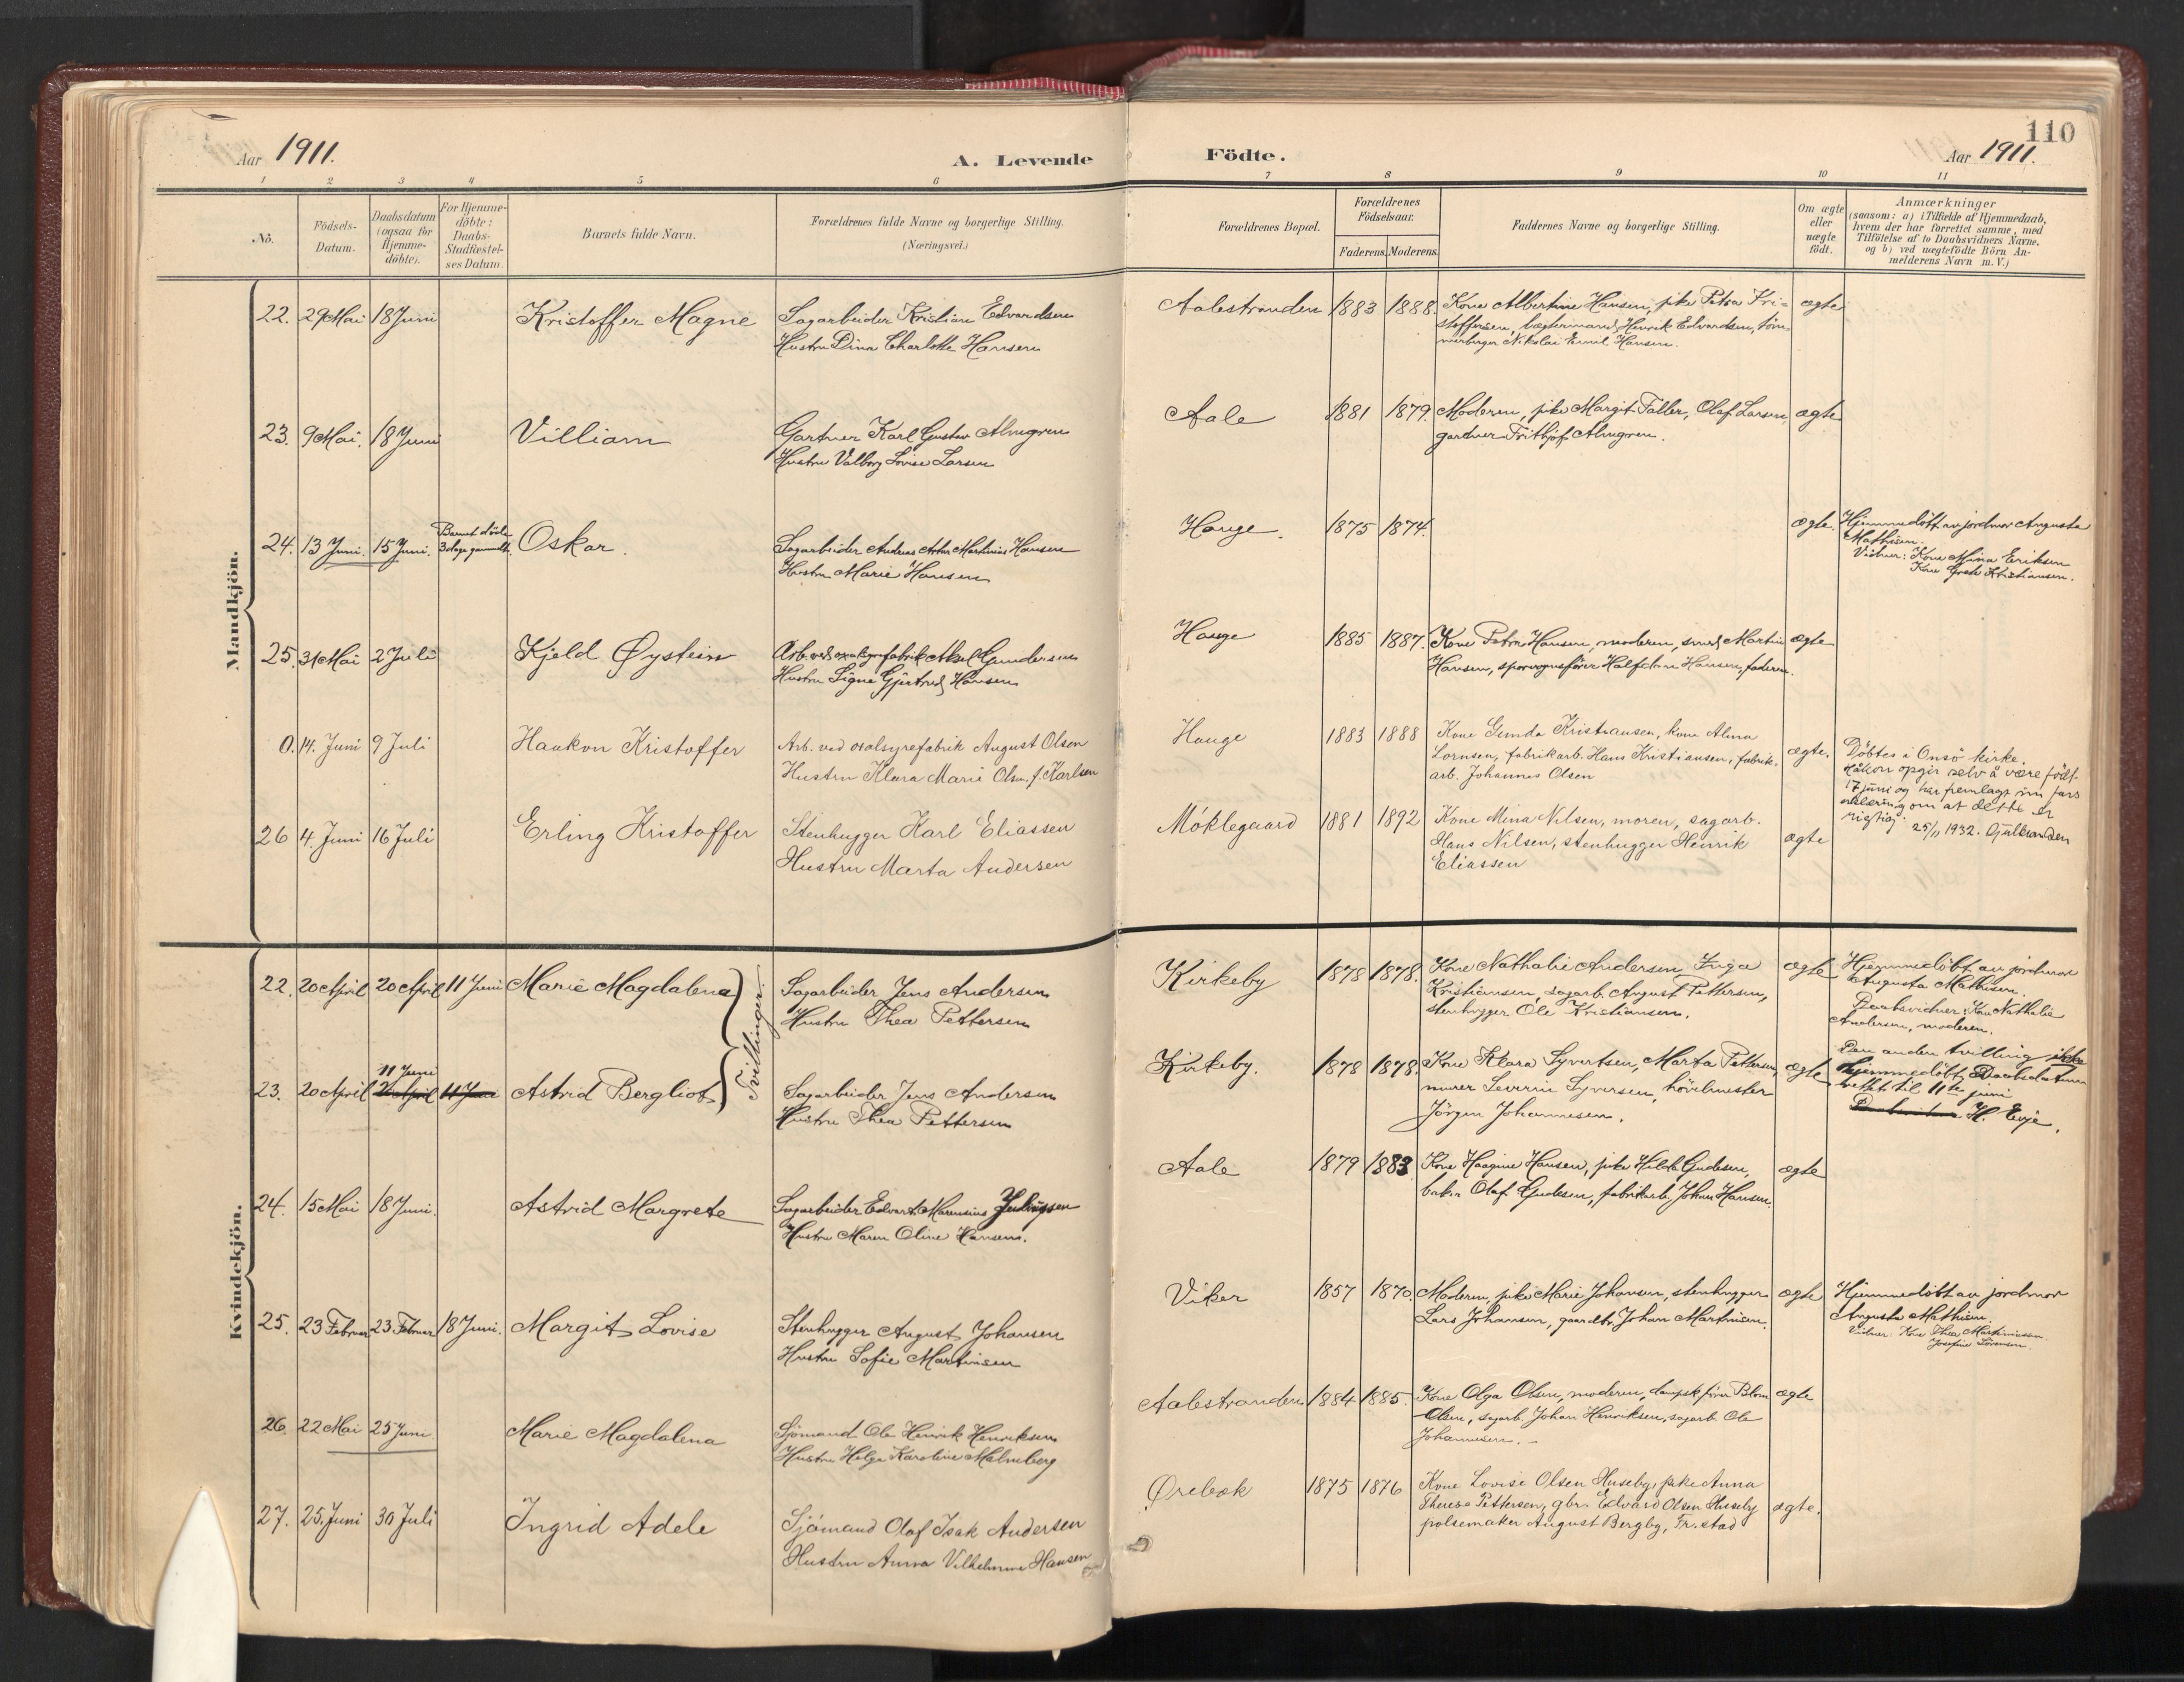 110
Aar 1911.
A. Levende
Födte.
Aar 1911.
1 2 3 4 5 6 7 8 9 10 11
No.
Födsels-
Datum.
Daabsdatum
(ogsaa for
Hjemme-
döbte).
For Hjemme-
döbte:
Daabs-
Stadfæstel-
ses Datum.
Barnets fulde Navn.
Forældrenes fulde Navne og borgerlige Stilling.
(Næringsvei.)
Forældrenes Bopæl.
Forældrenes
Födselsaar.
Faderens. Moderens.
Faddernes Navne og borgerlige Stilling.
Om ægte
eller
uægte
födt.
Anmærkninger
(saasom: a) i Tilfælde af Hjemmedaab,
hvem der har forrettet samme, med
Tilföielse af to Daabsvidners Navne,
og b) ved uægtefödte Börn An-
melderens Navn m. V.)
Mandkjön.
22. 29 Mai 18 Juni Kristoffer Magne
Sagarbeider Kristian Edvardsen
Hustru Dina Charlotte Hansen
Aalestranden 1883 1888.
Kone Albertine Hansen, pike Petra Kri-
stoffersen, bøgtermand Henrik Edvardsen, töm-
merberger Nikolai Emil Hansen.
ægte
23. 9 Mai. 18 Juni Villiam
Gartner Karl Gustav Almgren
Hustru Valborg Lovise Larsen
Aale 1881 1879.
Moderen, pike Margit Faller, Olaf Larsen,
gartner Frithjof Almgren.
ægte
24. 13 Juni. 15 Juni. Barnet döde
3 dage gammelt. Oskar.
Sagarbeider Andreas Artur Martinius Hansen
Hustru Marie Hansen
Hauge. 1875 1874.
ægte.
Hjemmedöbt av jordmor Augusta
Mathisen.
Vidner: Kone Mina Eriksen
Kone Grete Kristiansen.
25. 31 Mai 2 Juli Kjeld Øystein
Arb. ved oxalsyrefabrik Aksel Gundersen
Hustru Signe Gjertrud Hansen
Hauge 1885 1887.
Kone Petra Hansen, moderen, smed Martin
Hansen, sporvognsförer Halfdan Hansen, faderen.
ægte
0. 14. Juni 9 Juli Haakon Kristoffer
Arb. ved oxalsyrefabrik August Olsen
Hustru Klara Marie Olsen, f. Karlsen
Hauge 1883 1888
Kone Gunda Kristiansen, kone Alma
Lornsen, fabrikarb. Hans Kristiansen, fabrik-
arb. Johannes Olsen
ægte.
Döbtes i Onsö kirke.
Håkon opgir selv å være födt
17 juni og har fremlagt sin fars
erklæring om at dette er
riktig. 25/11 1932.
26 4. Juni 16 Juli Erling Kristoffer
Stenhugger Karl Eliassen
Hustru Marta Andersen
Móklegaard 1881 1892
Kone Mina Nilsen, moren, sagarb.
Hans Nilsen, stenhugger Henrik
Eliassen
ægte
Kvindekjön.
22. 20 April 20 April 11 Juni Marie Magdalena
Tvillinger.
Sagarbeider Jens Andersen
Hustru Thea Pettersen
Kirkeby 1878 1878.
Kone Nathalie Andersen, Inga
Kristiansen, sagarb. August Pettersen,
stenhugger Ole Kristiansen.
ægte
Hjemmedöbt av jordmor
Augusta Mathisen.
Daabsvidner: Kone Nathalie
Andersen, moderen.
11 Juni
23. 20 April 20 April 11 Juni Astrid Bergliot
Sagarbeider Jens Andersen
Hustru Thea Pettersen
Kirkeby. 1878 1878.
Kone Klara Syvertsen, Marta Pettersen
murer Severin Syversen, hövlmester
Jörgen Johannesen.
ægte
Den anden tvilling ikke
hjemmedöbt, Daabsdatum
rettet til 11te juni
H. Evje.
24. 15 Mai 18 Juni. Astrid Margrete
Sagarbeider Edvart Marensius Juliussen
Hustru Maren Oline Hansen.
Aale 1879 1883
Kone Haagine Hansen, pike Hilda Gudesen,
baker Olaf Gudesen, fabrikarb. Johan Hansen.
ægte
25. 23 Februar 23 Februar 18 Juni. Margit Lovise
Stenhugger August Johansen
Hustru Sofie Martinsen
Viker 1857 1870.
Moderen, pike Marie Johansen, stenhugger
Lars Johansen, gaardbr. Johan Martinsen.
ægte
Hjemmedöbt av jordmor
Augusta Mathisen.
Vidner: Kone Thea Martiniussen.
Josefine Sörensen.
26. 22 Mai 25 Juni Marie Magdalena
Sjömand Ole Henrik Henriksen
Hustru Helga Karoline Malmberg
Aalestranden 1884 1885.
Kone Olga Olsen, moderen, dampsk.förer Blom
Olsen, sagarb. Johan Henriksen, sagarb. Ole
Johannesen.
ægte
27. 25. Juni 30 Juli Ingrid Adele
Sjömand Olaf Isak Andersen
Hustru Anna Vilhelmine Hansen
Ørebæk 1875 1876
Kone Lovise Olsen Huseby, pike Anna
Therese Pettersen, gbr. Edvard Olsen Huseby
polsemaker August Bergby, Fr.stad
ægte.